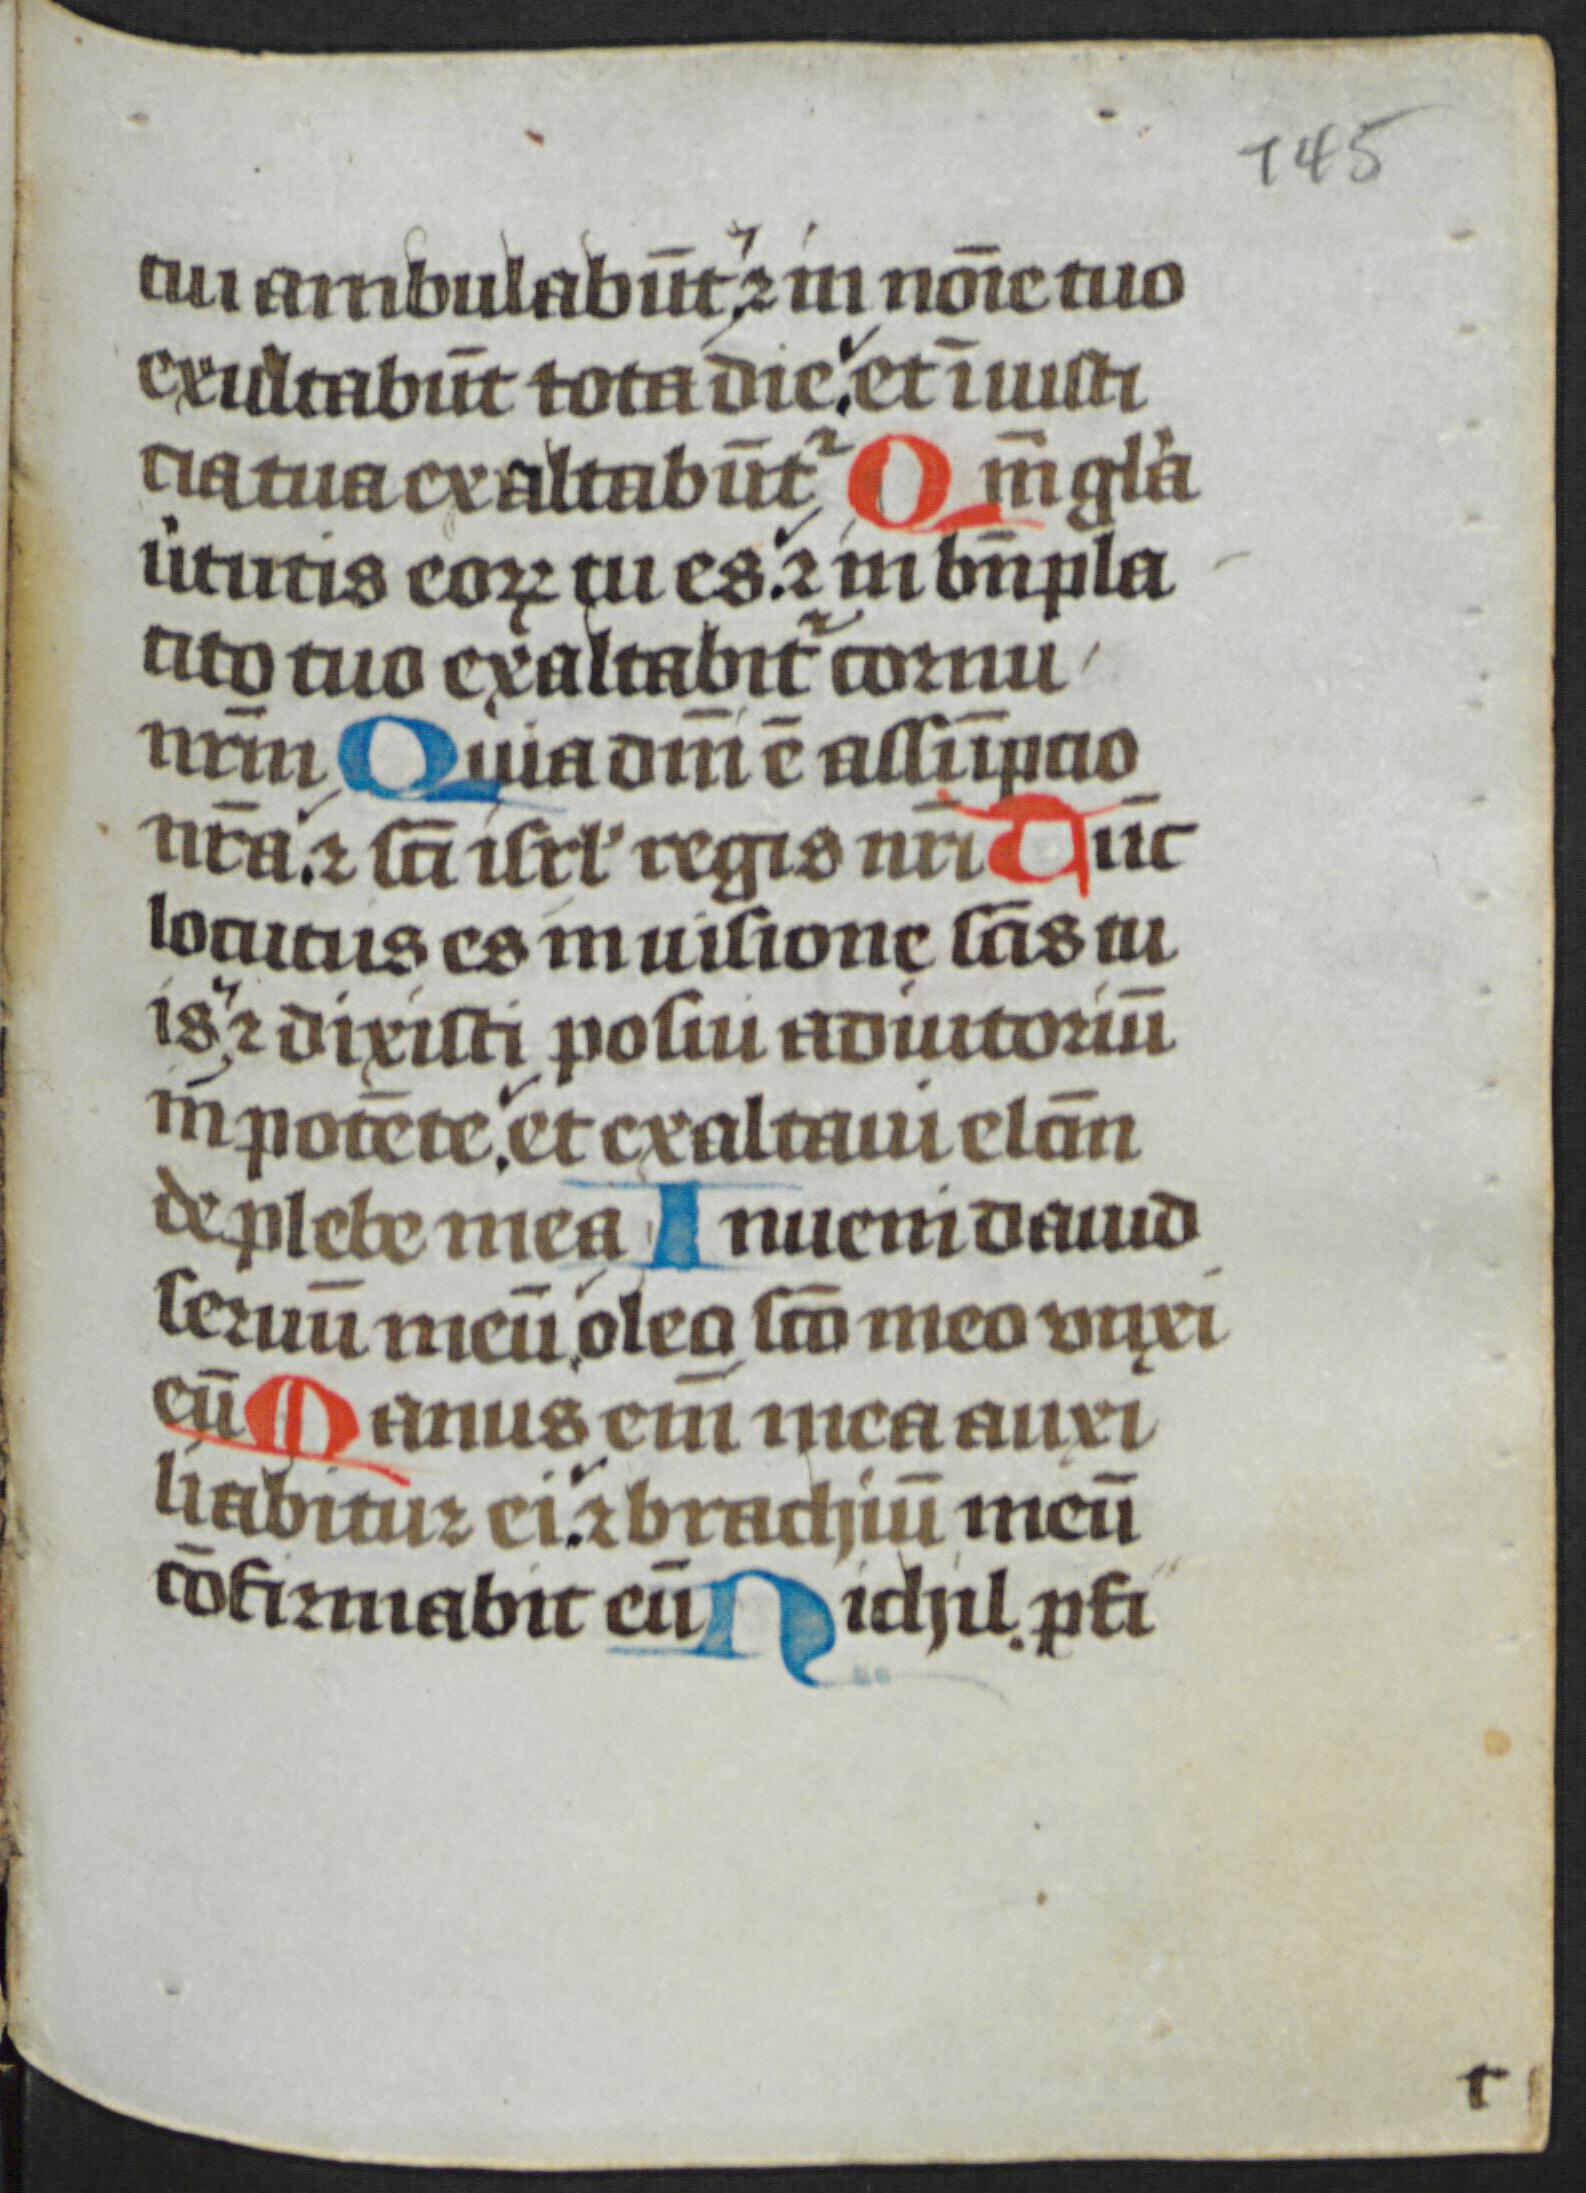 145
tui ambulabūt ⁊ in noīe tuo
exultabūt tota die. et ī iusti
tia tua exaltabūt᷑ Qm̄ gl'a
ẜtutis eoꝝ tu es. ⁊ in bn̄pla
cito tuo exaltabit᷑ cornu
nr̄m Quia dn̄i ē assūpcio
nr̄a. ⁊ sc̄i isrl' regis nr̄i Tūc
locutus es in uisione sc̄is tu
is ⁊ dixisti posui adiutoriū
in potēte. et exaltaui elc̄m
de plebe mea Inueni dauid
seruū meū. oleo sc̄o meo vnxi
eū Manus em̄ mea auxi
liabitur ei. ⁊ brachiū meū
cōfirmabit eū Nichil ꝓfi
t